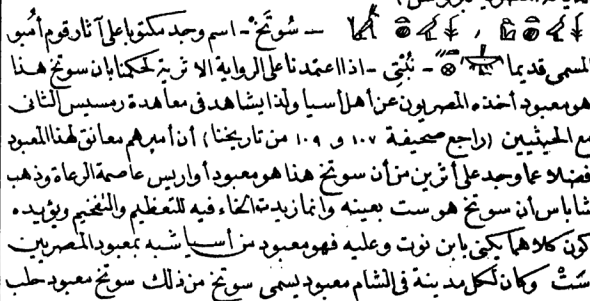 — سُوتَخْ - اسم وجد مكتوبا على آثار قوم أُمبو
المسمى قديما — نُبْتِى - اذا اعتمدنا على الرواية الاثرية لحكمنا بان سوتخ هذا
هو معبود أخذه المصريون عن أهل أسيا ولذا يشاهد فى معاهدة رمسيس الثانى
مع الحيثيين (راجع صحيفة ١٠٧ و ١٠٩ من تاريخنا) أن أميرهم معانق لهذا المعبود
فضلا عما وجد على أثرين من أن سوتخ هذا هو معبود أواريس عاصمة الرعاة وذهب
شاباس أن سوتخ هو ست بعينه وانما زيدت الخاء فيه للتعظيم والتفخيم ويؤيده
كون كلاهما يكنى بابن نوت وعليه فهو معبود من أسيا شبه بمعبود المصريين
سَتْ وكان لكل مدينة فى الشام معبود يسمى سوتخ من ذلك سوتخ معبود حلب